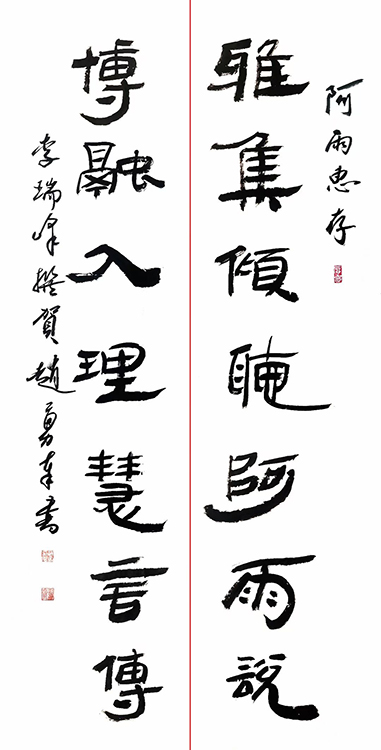 阿雨惠存
雅集傾聽阿雨說
博融入理慧言傳
李瑞峰撰賀趙勇奉書